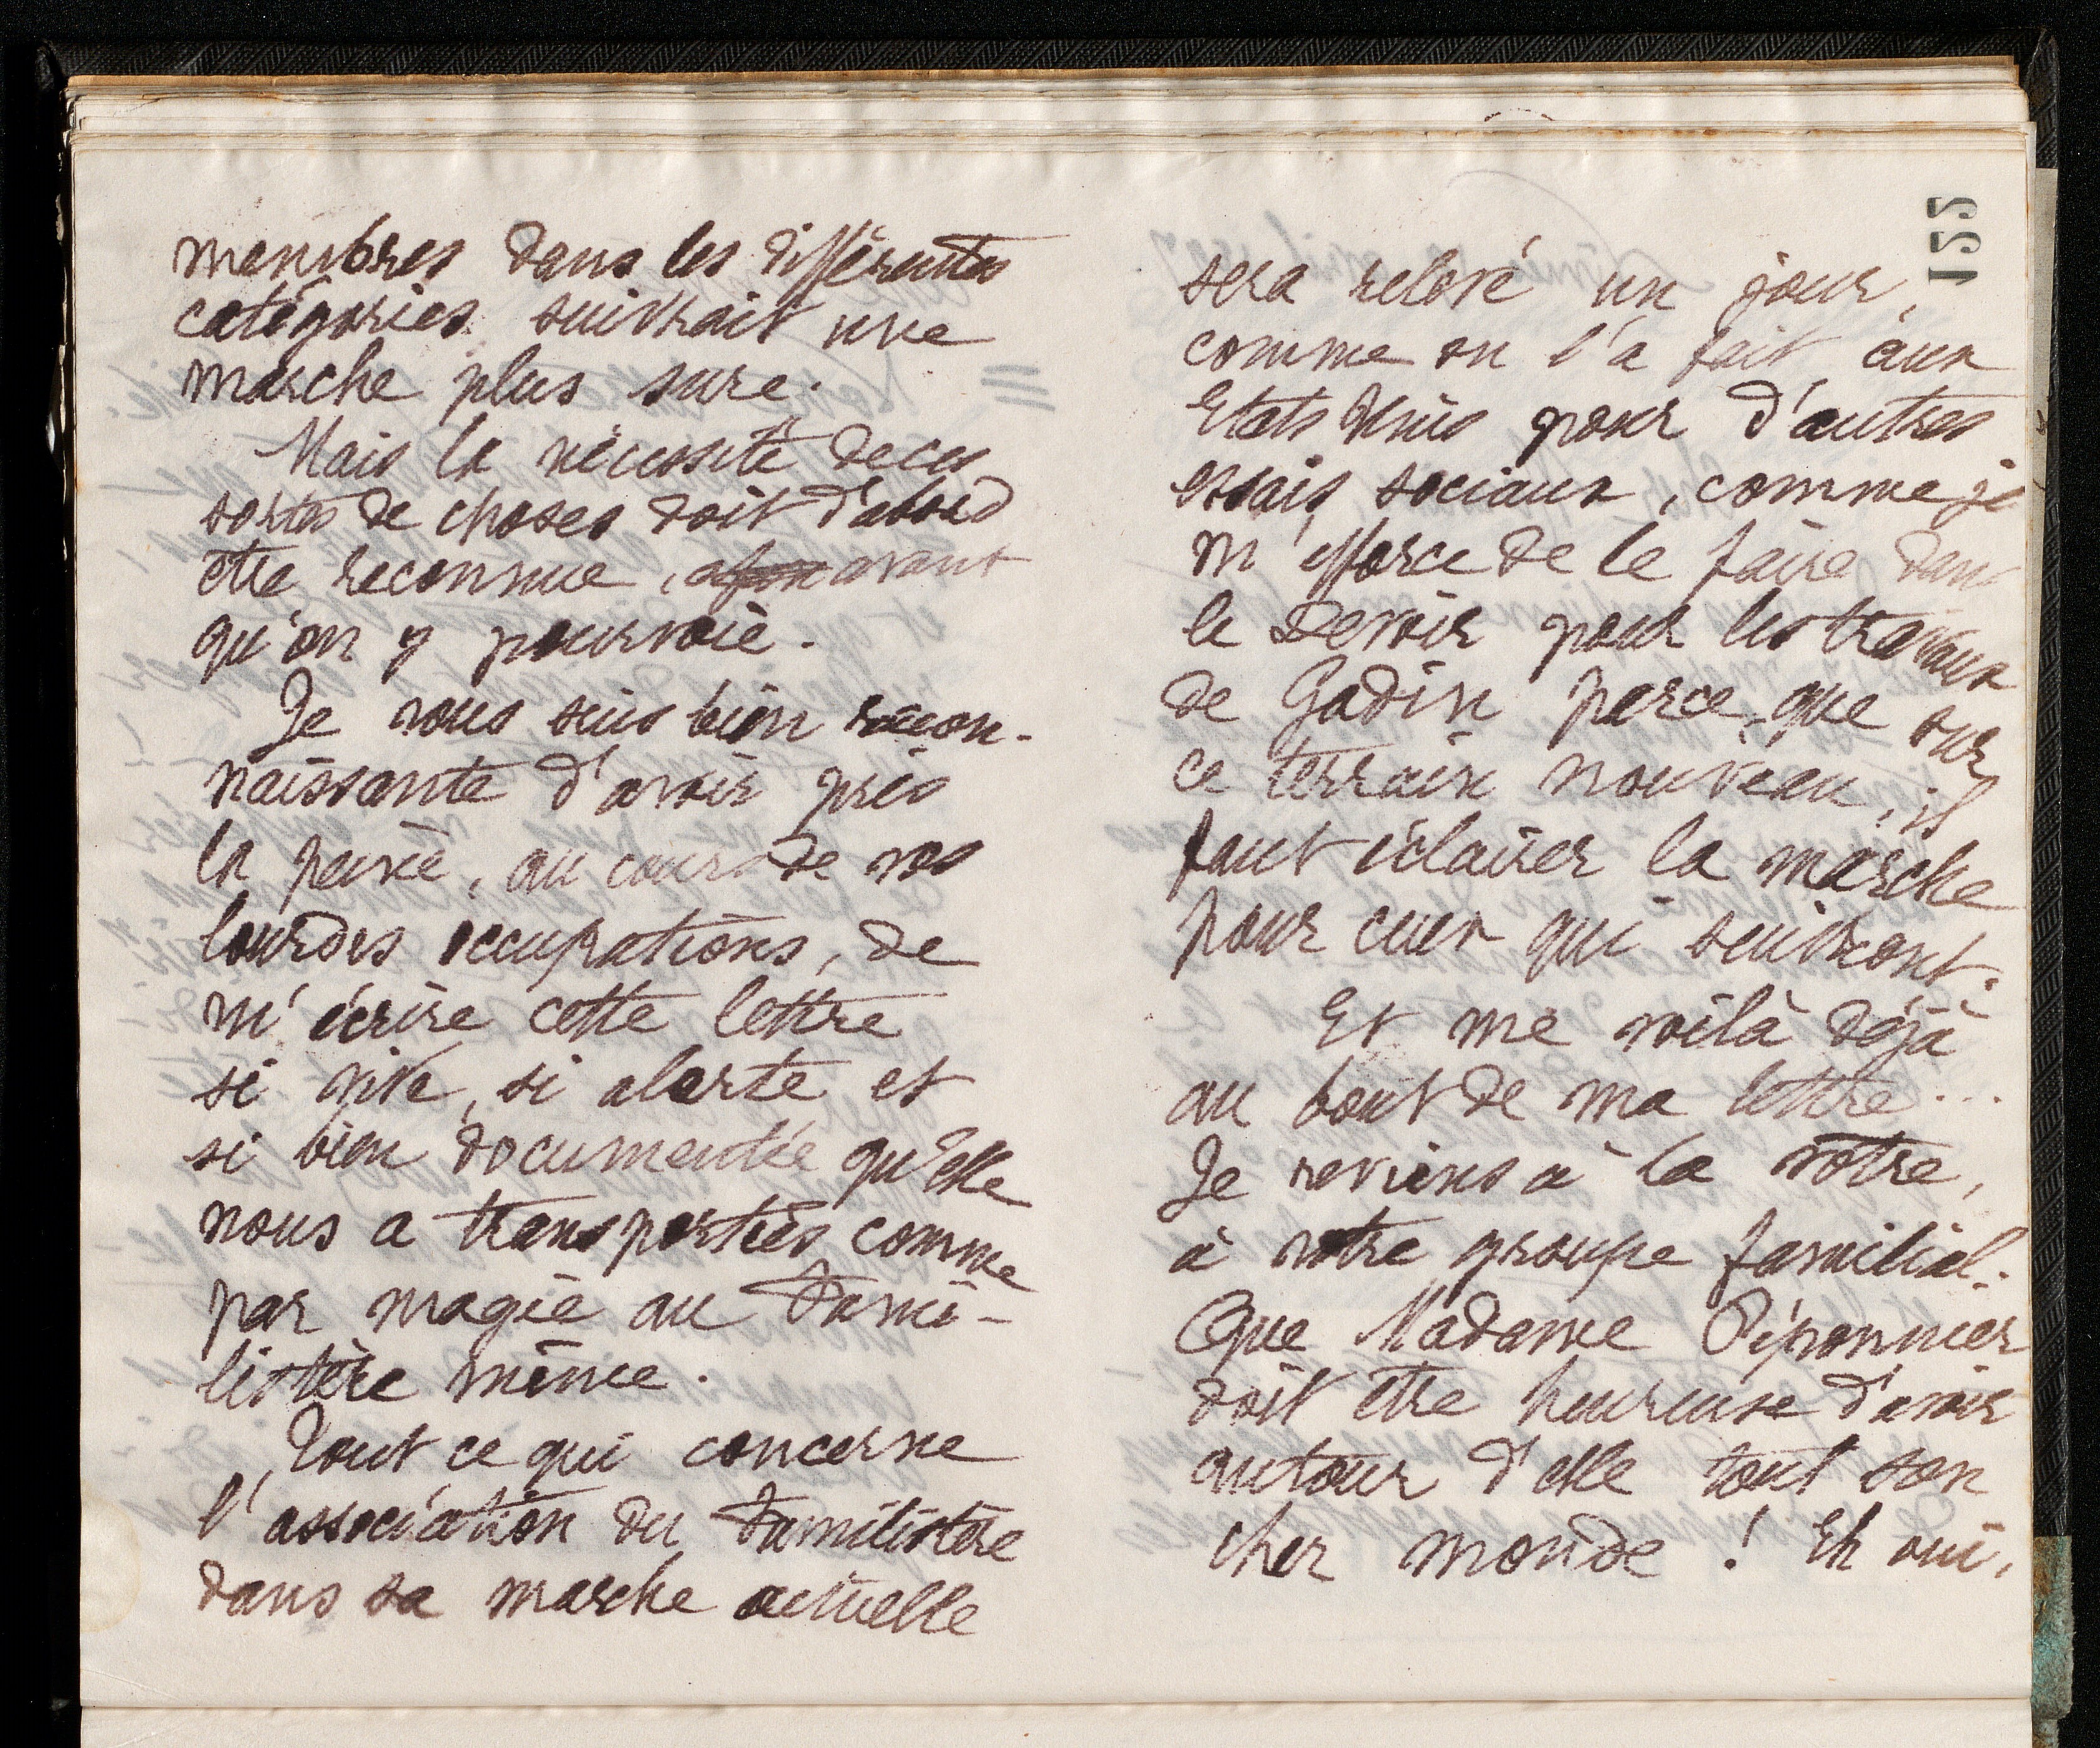 membres dans les différentes
catégories suivrait une
marche plus sure.
Mais la nécessité de ces
sortes de choses doit d'abord
être reconnue, afin avant
qu'on y pourvoie.
Je vous suis bien recon-
naissante d'avoir pris
la peine, au cours de vos
lourdes occupations, de
m'écrire cette lettre
si vive, si alerte et
si bien documentée qu'elle
nous a transportées comme
par magie au Fami-
listère même.
Tout ce qui concerne
l'association du Familistère
dans sa marche actuelle
155
sera relevé un jour,
comme on l'a fait aux
Etats Unis pour d'autres
essais sociaux, comme je
m'efforce de le faire dans
le Devoir pour les travaux
de Godin parce que sur
ce terrain nouveau, il
faut éclairer la marche
pour ceux qui suivront.
Et me voilà déjà
au bout de ma lettre...
Je reviens à la vôtre,
à votre groupe familial.
Que Madame Piponnier
doit être heureuse d'avoir
autour d'elle tout son
cher monde ! Eh oui,